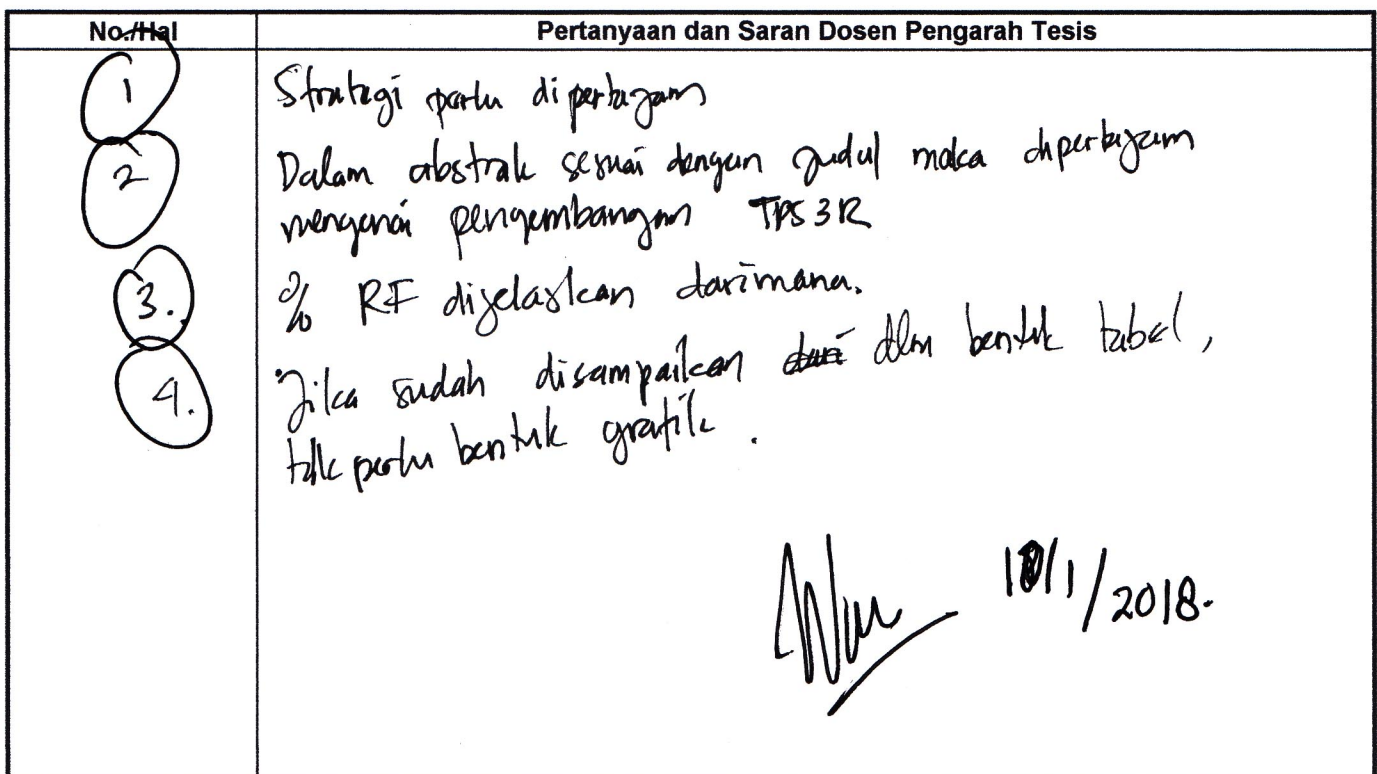 No./Hal Pertanyaan dan Saran Dosen Pengarah Tesis
1 Strategi perlu dipertajam
2 Dalam abstrak sesuai dengan judul maka dipertajam
mengenai pengembangan TPS 3R
3. % RF dijelaskan darimana.
4. Jika sudah disampaikan dari dlm bentuk tabel,
tdk perlu bentuk grafik.
/1/2018.